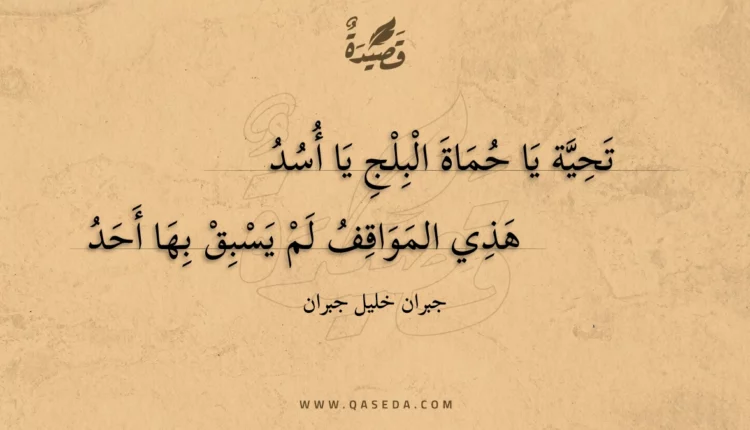 قَصِيدَةٌ
تَحِيَّة يَا حُمَاةَ الْبِلْجِ يَا أُسُدُ
هَذِي المَوَاقِفُ لَمْ يَسْبِقْ بِهَا أَحَدُ
جبران خليل جبران
WWW.QASEDA.COM